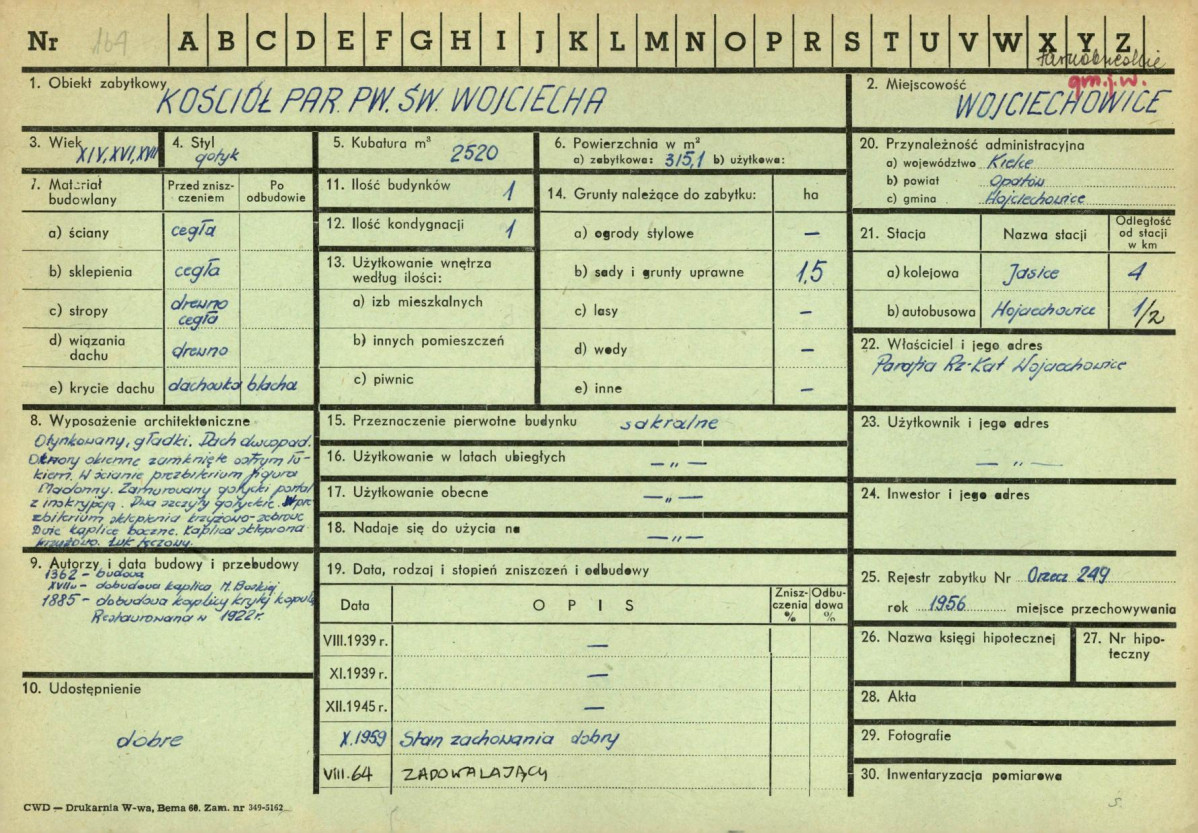 Nr 164 A B C D E F G H I J K L M N O P R S T U V W X Y Z
tarnobrzeskie
1. Obiekt zabytkowy
KOŚCIÓŁ PAR. PW. ŚW. WOJCIECHA
2. Miejscowość
gm.j.w.
WOJCIECHOWICE
3. Wiek
XIV, XVI, XVII
4. Styl
gotyk
5. Kubatura m³
2520
6. Powierzchnia w m²
a) zabytkowa: 315,1 b) użytkowa:
7. Materiał budowlany
Przed zniszczeniem
Po odbudowie
a) ściany cegła
b) sklepienia cegła
c) stropy drewno cegła
d) wiązania dachu drewno
e) krycie dachu dachówka blacha
8. Wyposażenie architektoniczne
Otynkowany, gładki. Dach dwuspad.
Otwory okienne zamknięte ostrym łu-
kiem. W ścianie prezbiterium figura
Madonny. Zamurowany gotycki portal
z inskrypcją. Dwa szczyty gotyckie. W pre
zbiterium sklepienia krzyżowo-żebrowe
Dwie kaplice boczne. Kaplica sklepiona
krzyżowo. Łuk tęczowy.
9. Autorzy i data budowy i przebudowy
1362 – budowa
XVIIw – dobudowa kaplica M. Boskiej
1885 – dobudowa kaplicy krytej kopułą
Restaurowana w 1922r.
10. Udostępnienie
dobre
11. Ilość budynków 1
12. Ilość kondygnacji 1
13. Użytkowanie wnętrza
według ilości:
a) izb mieszkalnych
b) innych pomieszczeń
c) piwnic
14. Grunty należące do zabytku: ha
a) ogrody stylowe —
b) sady i grunty uprawne 1,5
c) lasy —
d) wody —
e) inne —
15. Przeznaczenie pierwotne budynku sakralne
16. Użytkowanie w latach ubiegłych — „ —
17. Użytkowanie obecne — „ —
18. Nadaje się do użycia na — „ —
19. Data, rodzaj i stopień zniszczeń i odbudowy
Data O P I S Zniszczenia % Odbudowa %
VIII.1939 r. —
XI.1939 r. —
XII.1945 r. —
X.1959 Stan zachowania dobry
VIII.64 ZADOWALAJĄCY
20. Przynależność administracyjna
a) województwo Kielce
b) powiat Opatów
c) gmina Wojciechowice
21. Stacja Nazwa stacji Odległość od stacji w km
a) kolejowa Jasice 4
b) autobusowa Wojciechowice 1/2
22. Właściciel i jego adres
Parafia Rz-Kat Wojciechowice
23. Użytkownik i jego adres
— „ —
24. Inwestor i jego adres
25. Rejestr zabytku Nr Orzecz 249
rok 1956 miejsce przechowywania
26. Nazwa księgi hipotecznej
27. Nr hipo-
teczny
28. Akta
29. Fotografie
30. Inwentaryzacja pomiarowa
s.
CWD — Drukarnia W-wa, Bema 60. Zam. nr 349-5162